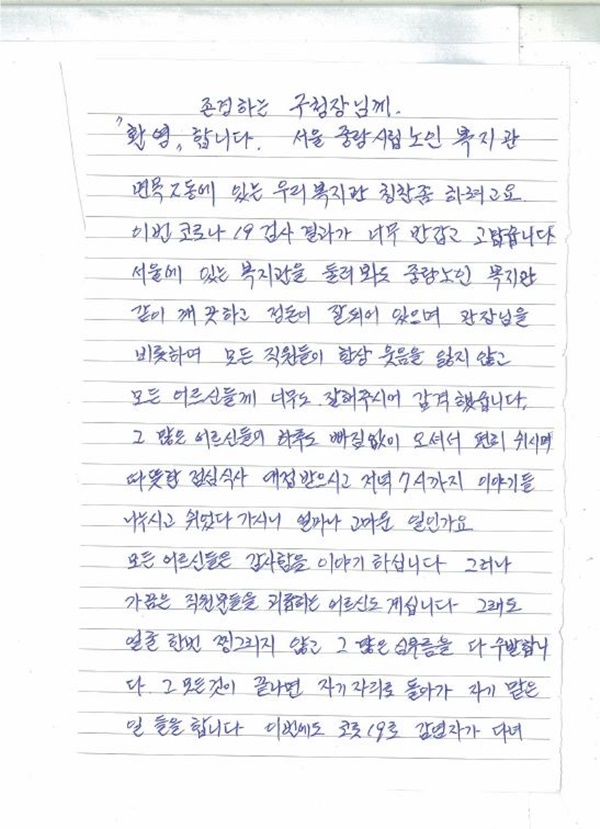 존경하는 구청장님께.
"환영" 합니다. 서울 중랑시립노인 복지관
면목2동에 있는 우리복지관 칭찬좀 하려고요
이번 코로나 19 검사 결과가 너무 반갑고 고맙습니다
서울에 있는 복지관을 둘러봐도 중랑노인 복지관
같이 깨끗하고 정돈이 잘되어 있으며 관장님을
비롯하여 모든 직원들이 항상 웃음을 잃지 않고
모든 어르신들께 너무도 잘해주시어 감격했습니다.
그 많은 어르신들의 하루도 빠짐없이 오셔서 편히 쉬시며
따뜻한 점심식사 대접받으시고 저녁 7시까지 이야기들
나누시고 쉬었다 가시니 얼마나 고마운 일인가요
모든 어르신들은 감사함을 이야기 하십니다 그러나
가끔은 직원분들을 괴롭히는 어르신도 계십니다 그래도
얼굴 한번 찡그리지 않고 그 많은 심부름을 다 수발합니
다. 그 모든것이 끝나면 자기자리로 돌아가 자기 맡은
일 들을 합니다 이번에도 코로나19로 감염자가 다녀